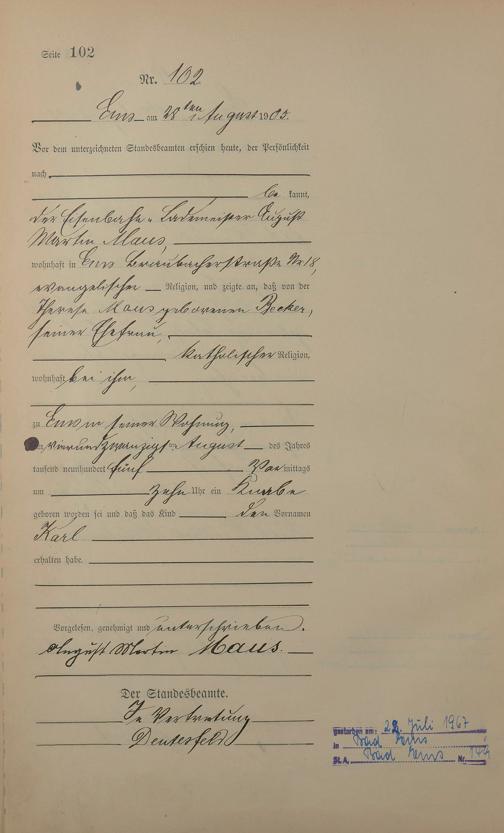 Seite 102
Nr. 102
Ems am 28ten August 1905.
Vor dem unterzeichneten Standesbeamten erschien heute, der Persönlichkeit
nach
be kannt,
der Eisenbahn-Lademeister August
Martin Maus,
wohnhaft in Ems Braubacherstraße Nr 18,
evangelischer Religion, und zeigte an, daß von der
Therese Maus geborenen Becker,
seiner Ehefrau,
katholischer Religion,
wohnhaft bei ihm,
zu Ems in seiner Wohnung,
am vierundzwanzigsten August des Jahres
tausend neunhundert fünf Vor mittags
um zehn Uhr ein Knabe
geboren worden sei und daß das Kind den Vornamen
Karl
erhalten habe.
Vorgelesen, genehmigt und unterschrieben.
August Martin Maus.
Der Standesbeamte.
In Vertretung
gestorben am: 22. Juli 1967
in Bad Ems
St.A. Bad Ems Nr.